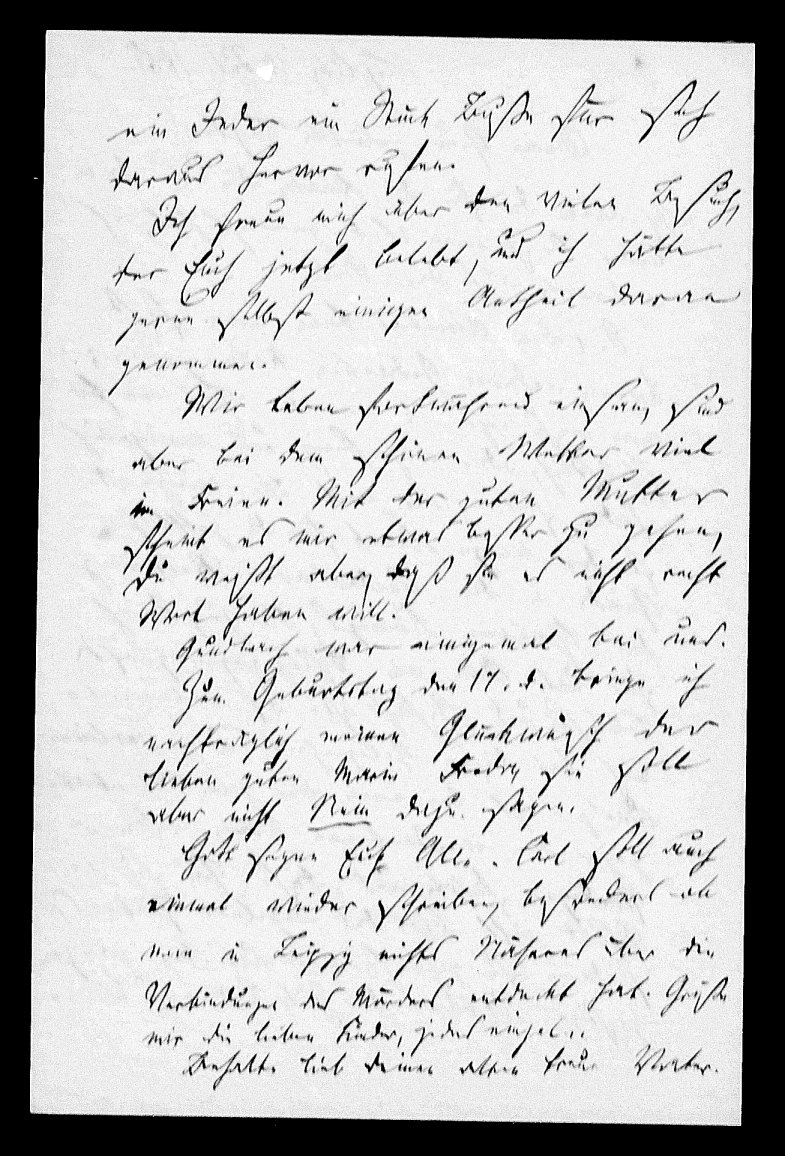 ein Jeder ein Stück Buße für sich
daraus hervor rufen.
Ich freue mich über den vielen Besuch,
der Euch jetzt belebt, und ich hätte
gerne selbst einigen Antheil daran
genommen.
Wir leben fortwährend einsam, sind
aber bei dem schönen Wetter viel
im Freien. Mit der guten Mutter
scheint es mir etwas besser zu gehen,
Du weißt aber, daß sie es nicht recht
Wort haben will.
Gundlach war einigemal bei uns.
Zum Geburtstag den 17. d. bringe ich
nachträglich meinen Glückwunsch der
lieben guten Marie sie soll
aber nicht Nein dazu sagen.
Gott segne Euch Alle. Carl soll auch
einmal wieder schreiben, besonders ob
man in Leipzig nichts Näheres über die
Verbindungen des Mörders entdeckt hat. Grüße
mir die lieben Kinder, jedes einzeln.
Behalte lieb deinen alten treuen Vater.